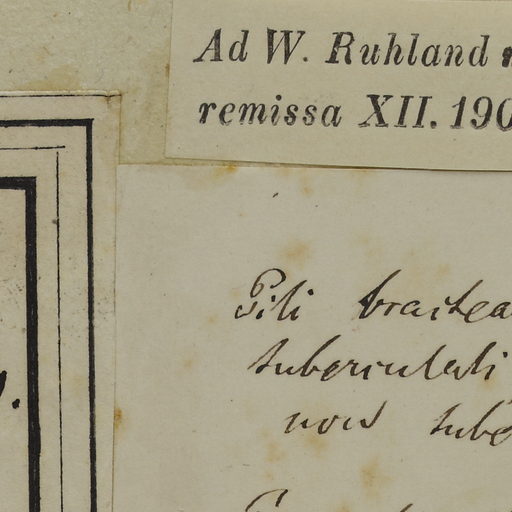 Ad W. Ruhland
remissa XII. 190
Pili bractea
tuberculati
non tube